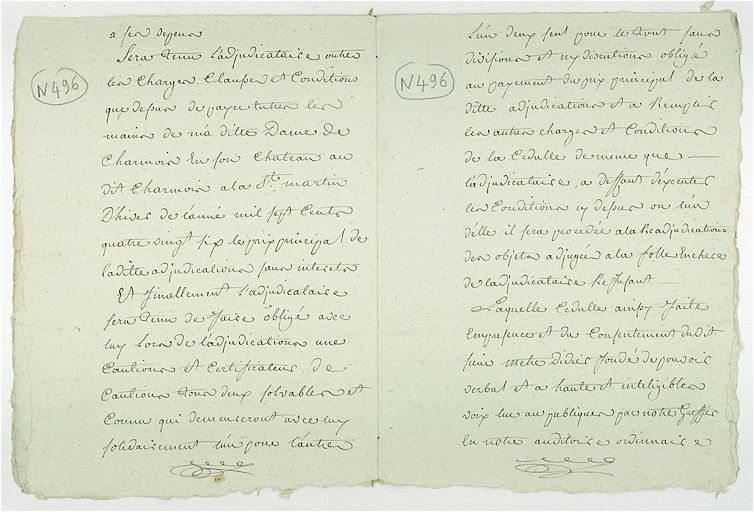 a ses depens
Sera tenu L'adjudicataire outre
les Charges Clauses et Conditions
que dessus de payer entre les
mains de ma ditte Dame de
Charmois En son Chateau au
dit Charmois a la St. martin
D'hiver de L'année mil sept Cents
quatre vingt six le prix principal de
laditte adjudications sans interets
Et finallement L'adjudicataire
sera tenu de faire obligé avec
luy Lors de l'adjudications une
Cautions et Certificateur de
Cautions tous deux solvables et
Connu qui demeureront avec luy
solidairement L'un pour L'autre
N 496
L'un deux seul pour le tout sans
divisions et ny discutions obligé
au payement du prix principal de la
ditte adjudications et a Remplir
les autres charges et Conditions
de la Cedulle de meme que
L'adjudicataire, a deffaut d'éxecuter
les Conditions cy dessus ou L'un
d'elle il sera procedée a la Readjudications
des objets adjugée a la folle Enchere
de Ladjudicataire Reffusant
Laquelle Cedulle ainsy faite
En presence et du Consentement dudit
sieur Didier fondé de pouvoir
verbal et a haute et inteligible
voix lue au publique par notre Greffier
En notre auditoire ordinnaire
N 496